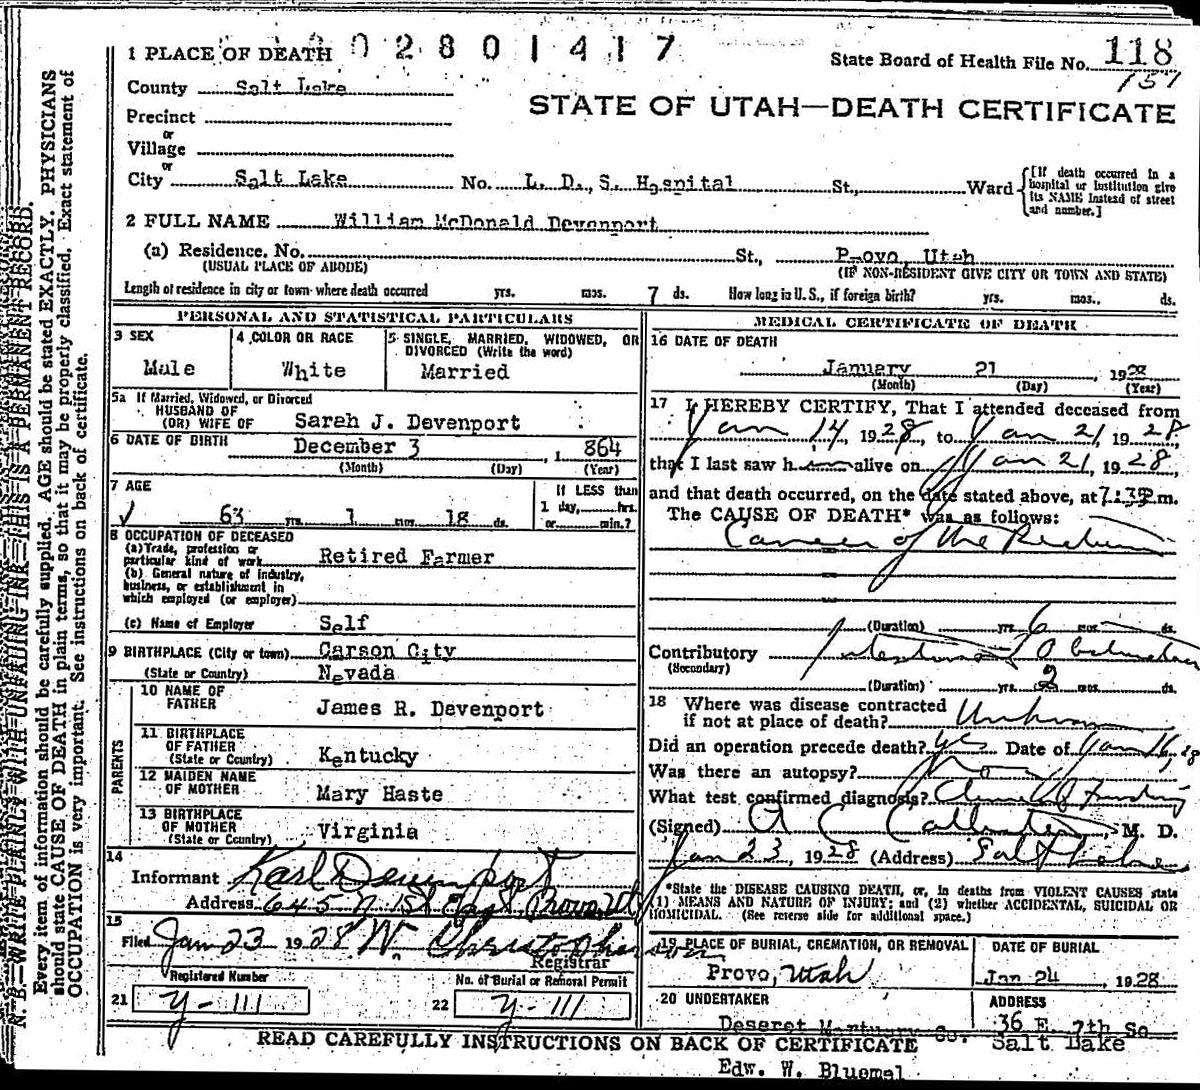 02801417
1 PLACE OF DEATH
State Board of Health File No. 118
157
County Salt Lake
STATE OF UTAH—DEATH CERTIFICATE
Precinct
or
Village
or
City Salt Lake No. L. D. S. Hospital St., Ward [If death occurred in a hospital or institution give its NAME instead of street and number.]
2 FULL NAME William McDonald Devenport
(a) Residence. No. St., Provo, Utah
(USUAL PLACE OF ABODE) (IF NON-RESIDENT GIVE CITY OR TOWN AND STATE)
Length of residence in city or town where death occurred yrs. mos. 7 ds. How long in U. S., if foreign birth? yrs. mos. ds.
PERSONAL AND STATISTICAL PARTICULARS
3 SEX
Male
4 COLOR OR RACE
White
5 SINGLE, MARRIED, WIDOWED, OR
DIVORCED (Write the word)
Married
5a If Married, Widowed, or Divorced
HUSBAND OF
(OR) WIFE OF Sarah J. Devenport
6 DATE OF BIRTH December 3, 1864
(Month) (Day) (Year)
7 AGE
63 yrs. 1 mos. 18 ds.
If LESS than
1 day, hrs.
or min.?
8 OCCUPATION OF DECEASED
(a) Trade, profession or
particular kind of work Retired Farmer
(b) General nature of industry,
business, or establishment in
which employed (or employer)
(c) Name of Employer Self
9 BIRTHPLACE (City or town) Carson City
(State or Country) Nevada
PARENTS
10 NAME OF
FATHER James R. Devenport
11 BIRTHPLACE
OF FATHER
(State or Country) Kentucky
12 MAIDEN NAME
OF MOTHER Mary Haste
13 BIRTHPLACE
OF MOTHER
(State or Country) Virginia
14
Informant Karl Devenport
Address 645 N 1st East Provo, Ut
15
Filed Jan 23 1928 W. Christopherson
Registrar
Registered Number
21 Y-111
No. of Burial or Removal Permit
22 Y-111
MEDICAL CERTIFICATE OF DEATH
16 DATE OF DEATH
January 21 1928
(Month) (Day) (Year)
17 I HEREBY CERTIFY, That I attended deceased from
Jan 14, 1928, to Jan 21, 1928,
that I last saw him alive on Jan 21, 1928,
and that death occurred, on the date stated above, at m.
The CAUSE OF DEATH* was as follows:
Cancer of the Rectum
(Duration) yrs. 6 mos. ds.
Contributory Intestinal Obstruction
(Secondary)
(Duration) yrs. 2 mos. ds.
18 Where was disease contracted
if not at place of death? Unknown
Did an operation precede death? Yes Date of Jan 16, 28
Was there an autopsy? No
What test confirmed diagnosis? Clinical Finding
(Signed) A C Callister, M. D.
Jan 23, 1928 (Address) Salt Lake
*State the DISEASE CAUSING DEATH, or, in deaths from VIOLENT CAUSES state
(1) MEANS AND NATURE OF INJURY; and (2) whether ACCIDENTAL, SUICIDAL OR
HOMICIDAL. (See reverse side for additional space.)
19 PLACE OF BURIAL, CREMATION, OR REMOVAL
Provo, Utah
DATE OF BURIAL
Jan 24, 1928
20 UNDERTAKER
Deseret Mortuary Co.
ADDRESS
36 E. 7th So
Salt Lake
READ CAREFULLY INSTRUCTIONS ON BACK OF CERTIFICATE
Edw. W. Bluemel
N. B.—WRITE PLAINLY WITH UNFADING INK—THIS IS A PERMANENT RECORD.
Every item of information should be carefully supplied. AGE should be stated EXACTLY. PHYSICIANS
should state CAUSE OF DEATH in plain terms, so that it may be properly classified. Exact statement of
OCCUPATION is very important. See instructions on back of certificate.